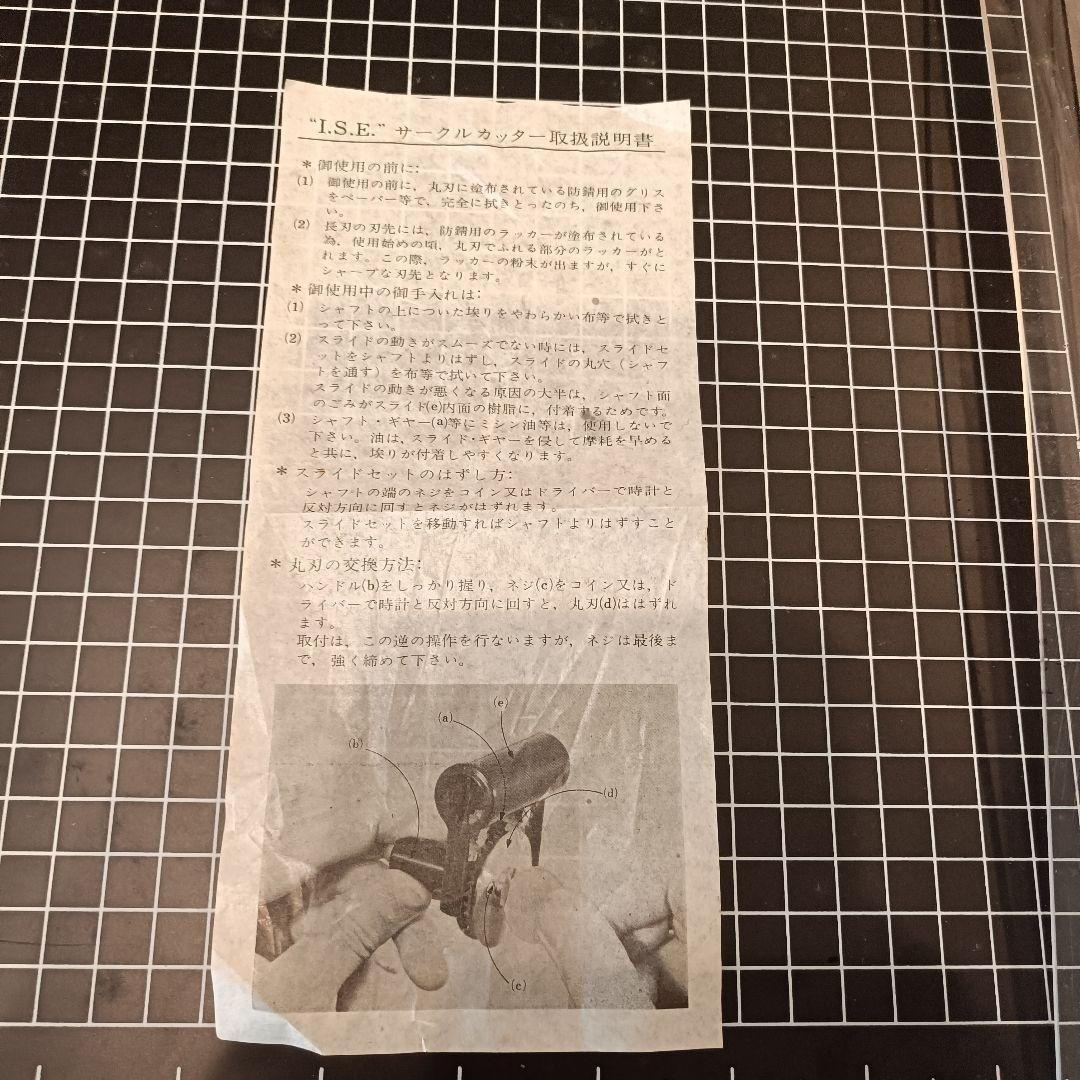 "I.S.E."サークルカッター取扱説明書
＊御使用の前に：
(1) 御使用の前に，丸刃に塗布されている防錆用のグリス
をペーパー等で，完全に拭きとったのち，御使用下さ
い。
(2) 長刃の刃先には，防錆用のラッカーが塗布されている
為，使用始めの頃，丸刃でふれる部分のラッカーがと
れます。この際，ラッカーの粉末が出ますが，すぐに
シャープな刃先となります。
＊御使用中の御手入れは：
(1) シャフトの上についた埃りをやわらかい布等で拭きと
って下さい。
(2) スライドの動きがスムーズでない時には，スライドセ
ットをシャフトよりはずし，スライドの丸穴（シャフ
トを通す）を布等で拭いて下さい。
スライドの動きが悪くなる原因の大半は，シャフト面
のごみがスライド(e)内面の樹脂に，付着するためです。
(3) シャフト・ギヤー(a)等にミシン油等は，使用しないで
下さい。油は，スライド・ギヤーを侵して摩耗を早める
と共に，埃りが付着しやすくなります。
＊スライドセットのはずし方：
シャフトの端のネジをコイン又はドライバーで時計と
反対方向に回すとネジがはずれます。
スライドセットを移動すればシャフトよりはずすこと
ができます。
＊丸刃の交換方法：
ハンドル(b)をしっかり握り，ネジ(c)をコイン又は，ド
ライバーで時計と反対方向に回すと，丸刃(d)ははずれ
ます。
取付は，この逆の操作を行ないますが，ネジは最後ま
で，強く締めて下さい。
(e)
(a)
(b)
(d)
(c)